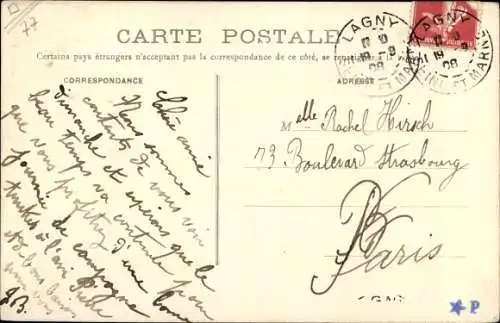 77
CARTE POSTALE
Certains pays étrangers n'acceptent pas la correspondance de ce côté, se renseigner à la
CORRESPONDANCE
ADRESSE
LAGNY
19 - 9
08
SEINE-ET-MARNE
LAGNY
19 - 9
08
SEINE-ET-MARNE
Chère amie
Nous sommes
contents de vous voir
dimanche et espérons que le
beau temps va continuer pour
que vous profitiez d'une bonne
journée de campagne
à l'air
Bons baisers
J.B.
Melle Rachel Hirsch
73 Boulevard Strasbourg
Paris
P